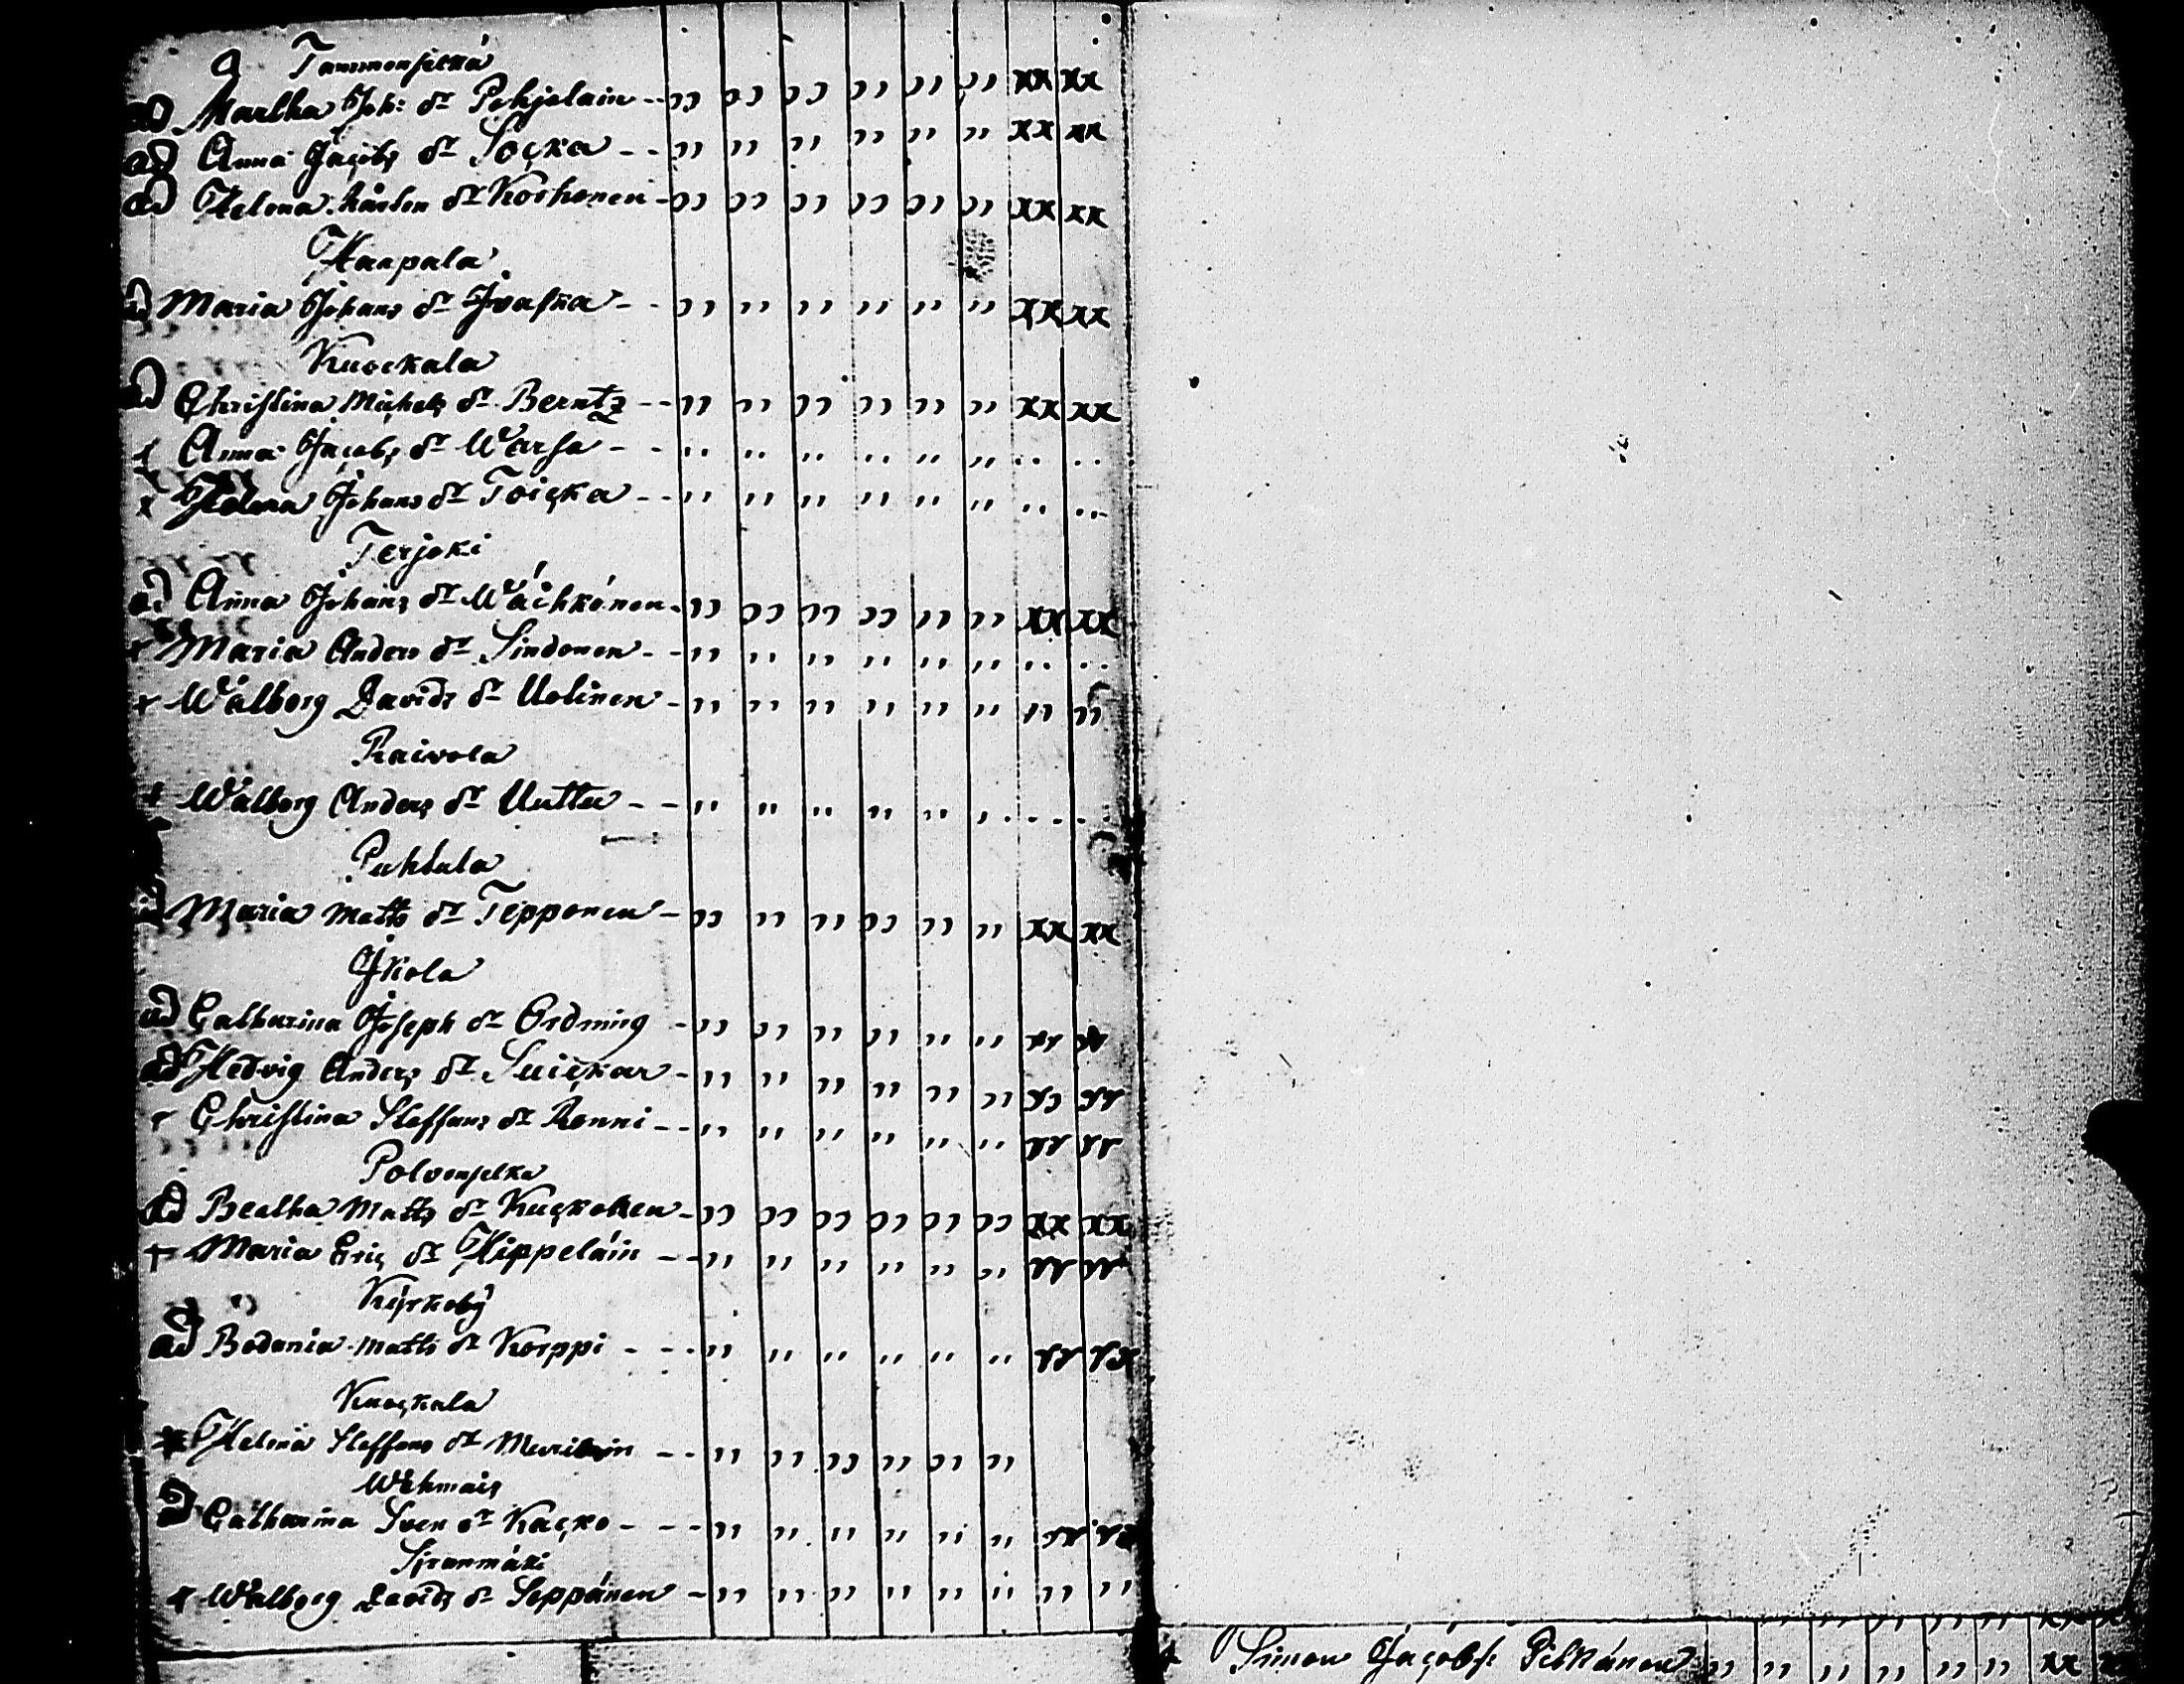 Tammenselkä
ad Martha Joh: dr Pohjolain -- ,, ,, ,, ,, ,, ,, xx xx
ad Anna Jacobs dr Socka -- ,, ,, ,, ,, ,, ,, xx xx
ad Helena Mårten dr Korhonen - ,, ,, ,, ,, ,, ,, xx xx
Haapala
Maria Johans dr Ivaska -- ,, ,, ,, ,, ,, ,, xx xx
Kuockala
ad Christina Michels dr Berntz -- ,, ,, ,, ,, ,, ,, xx xx
Anna Jacobs dr Warsa -- ,, ,, ,, ,, ,, ,, .. ..
x Helena Johans dr Toicka -- ,, ,, ,, ,, ,, ,, .. ..
Terjoki
ad Anna Johans dr Wäihkönen - ,, ,, ,, ,, ,, ,, xx xx
Maria Anders dr Sindonen -- ,, ,, ,, ,, ,, ,, .. ..
Walborg Davids dr Uolinen - ,, ,, ,, ,, ,, ,, ,, ,,
Raivola
+ Walborg Anders dr Uuttu -- ,, ,, ,, ,, ,, , .. ..
Puhtula
Maria Matts dr Tepponen - ,, ,, ,, ,, ,, ,, xx xx
Ikola
ad Catharina Joseph dr Ordning - ,, ,, ,, ,, ,, ,, xx xx
ad Hedvig Anders dr Suickar - ,, ,, ,, ,, ,, ,, xx xx
Christina Steffans dr Ronni -- ,, ,, ,, ,, ,, ,, xx xx
Polvenselka
ad Beatha Matts dr Kuckonen - ,, ,, ,, ,, ,, ,, xx xx
+ Maria Eric dr Hippeläin -- ,, ,, ,, ,, ,, ,, xx xx
Kyrkoby
ad Matts dr Korppi --- ,, ,, ,, ,, ,, ,, xx xx
Kuockala
Helena Steffans dr -- ,, ,, ,, ,, ,, ,,
Wehmais
Catharina Sven dr Kacko --- ,, ,, ,, ,, ,, ,, xx xx
Walborg Davids dr Seppänen - ,, ,, ,, ,, ,, ,, ,, ,,
Simon Jacobs: Pelkänen ,, ,, ,, ,, ,, ,, xx xx